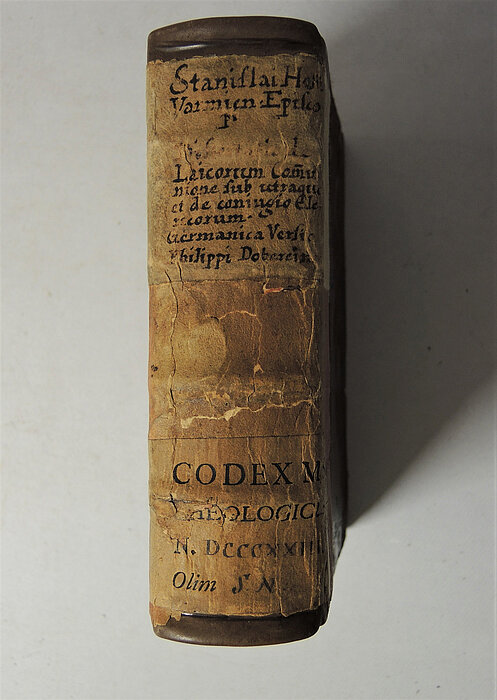 Stanislai Hosii
Varmien Episco
P
Laicorum Com̄u
nione sub utraque
et de coniugio Cle
ricorum.
Germanica Versio
Philippi Doberein
CODEX M
THEOLOGICU
N. DCCCXXIII
Olim S. N.